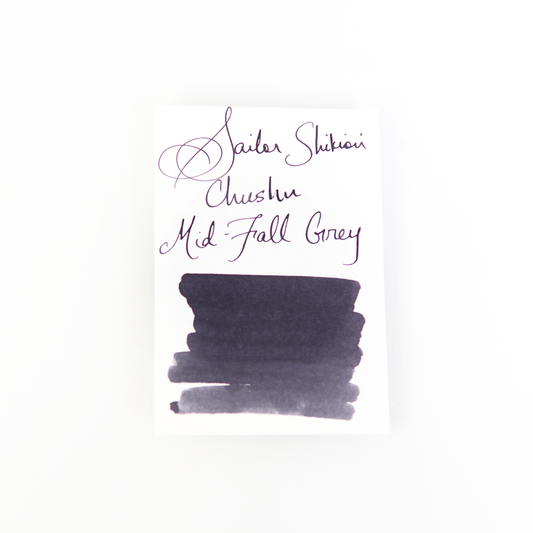 Sailor Shikiori
Chushu
Mid-Fall Grey